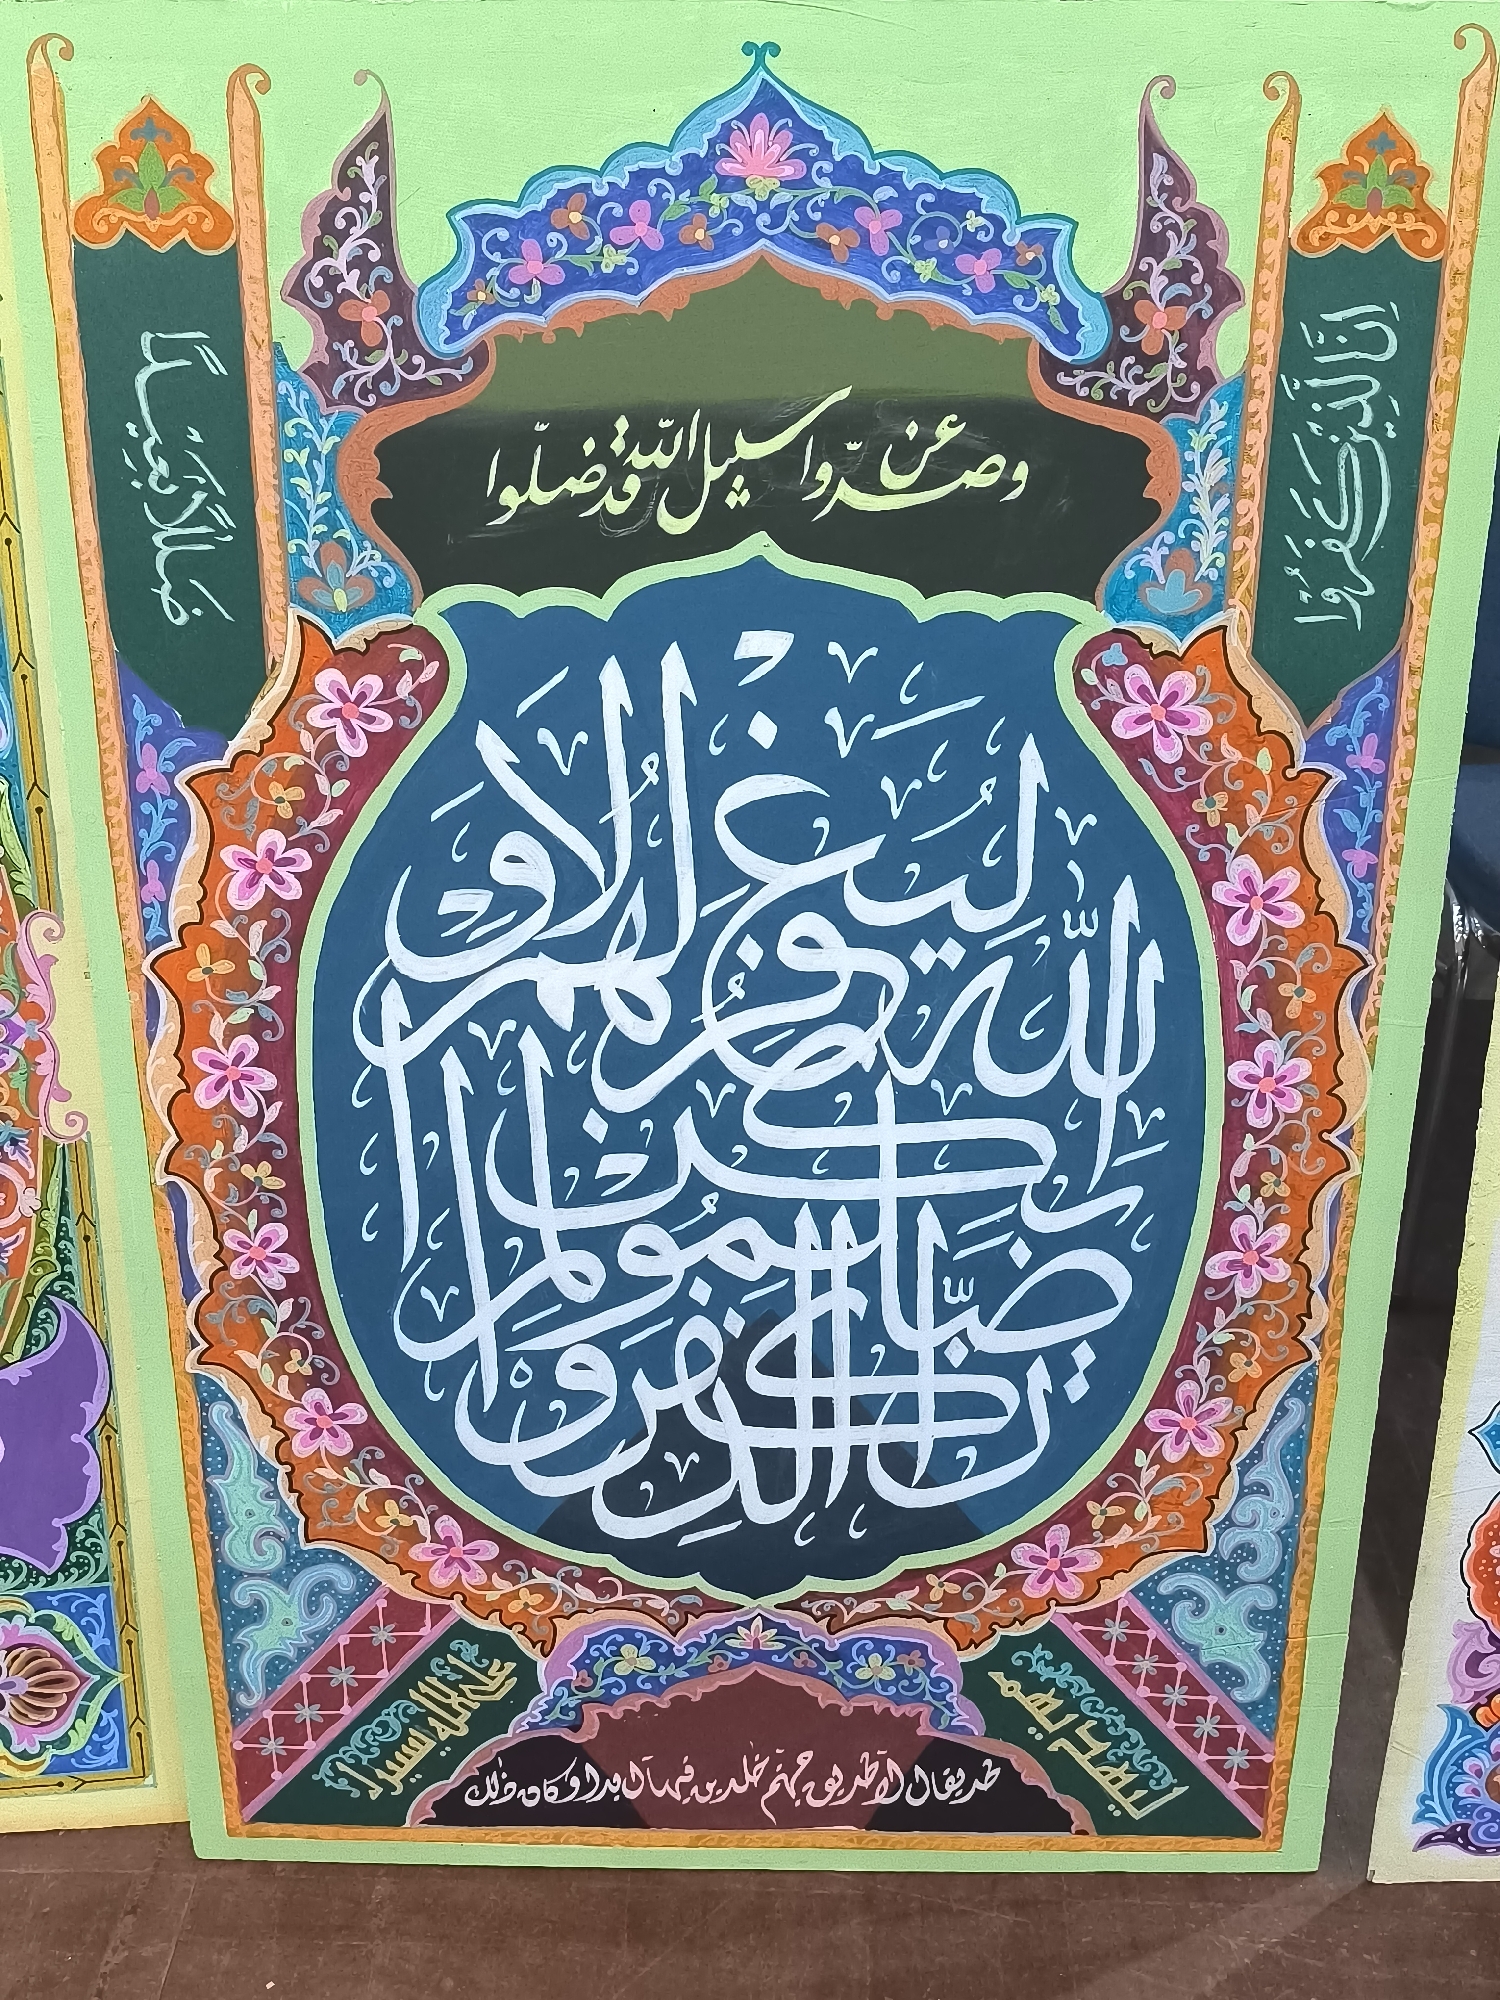 اِنَّ الَّذِيْنَ كَفَرُوْا
وصدّوا عن سبيل اللّه قد ضلّوا
ضَلٰلًاۢ بَعِيْدًا
اِنَّ الَّذِيْنَ كَفَرُوْا وَظَلَمُوْا لَمْ يَكُنِ اللّٰهُ لِيَغْفِرَ لَهُمْ وَلَا
ليهديهم
طريقا الا طريق جهنم خلدين فيها ابدا وكان ذلك
على الله يسيرا